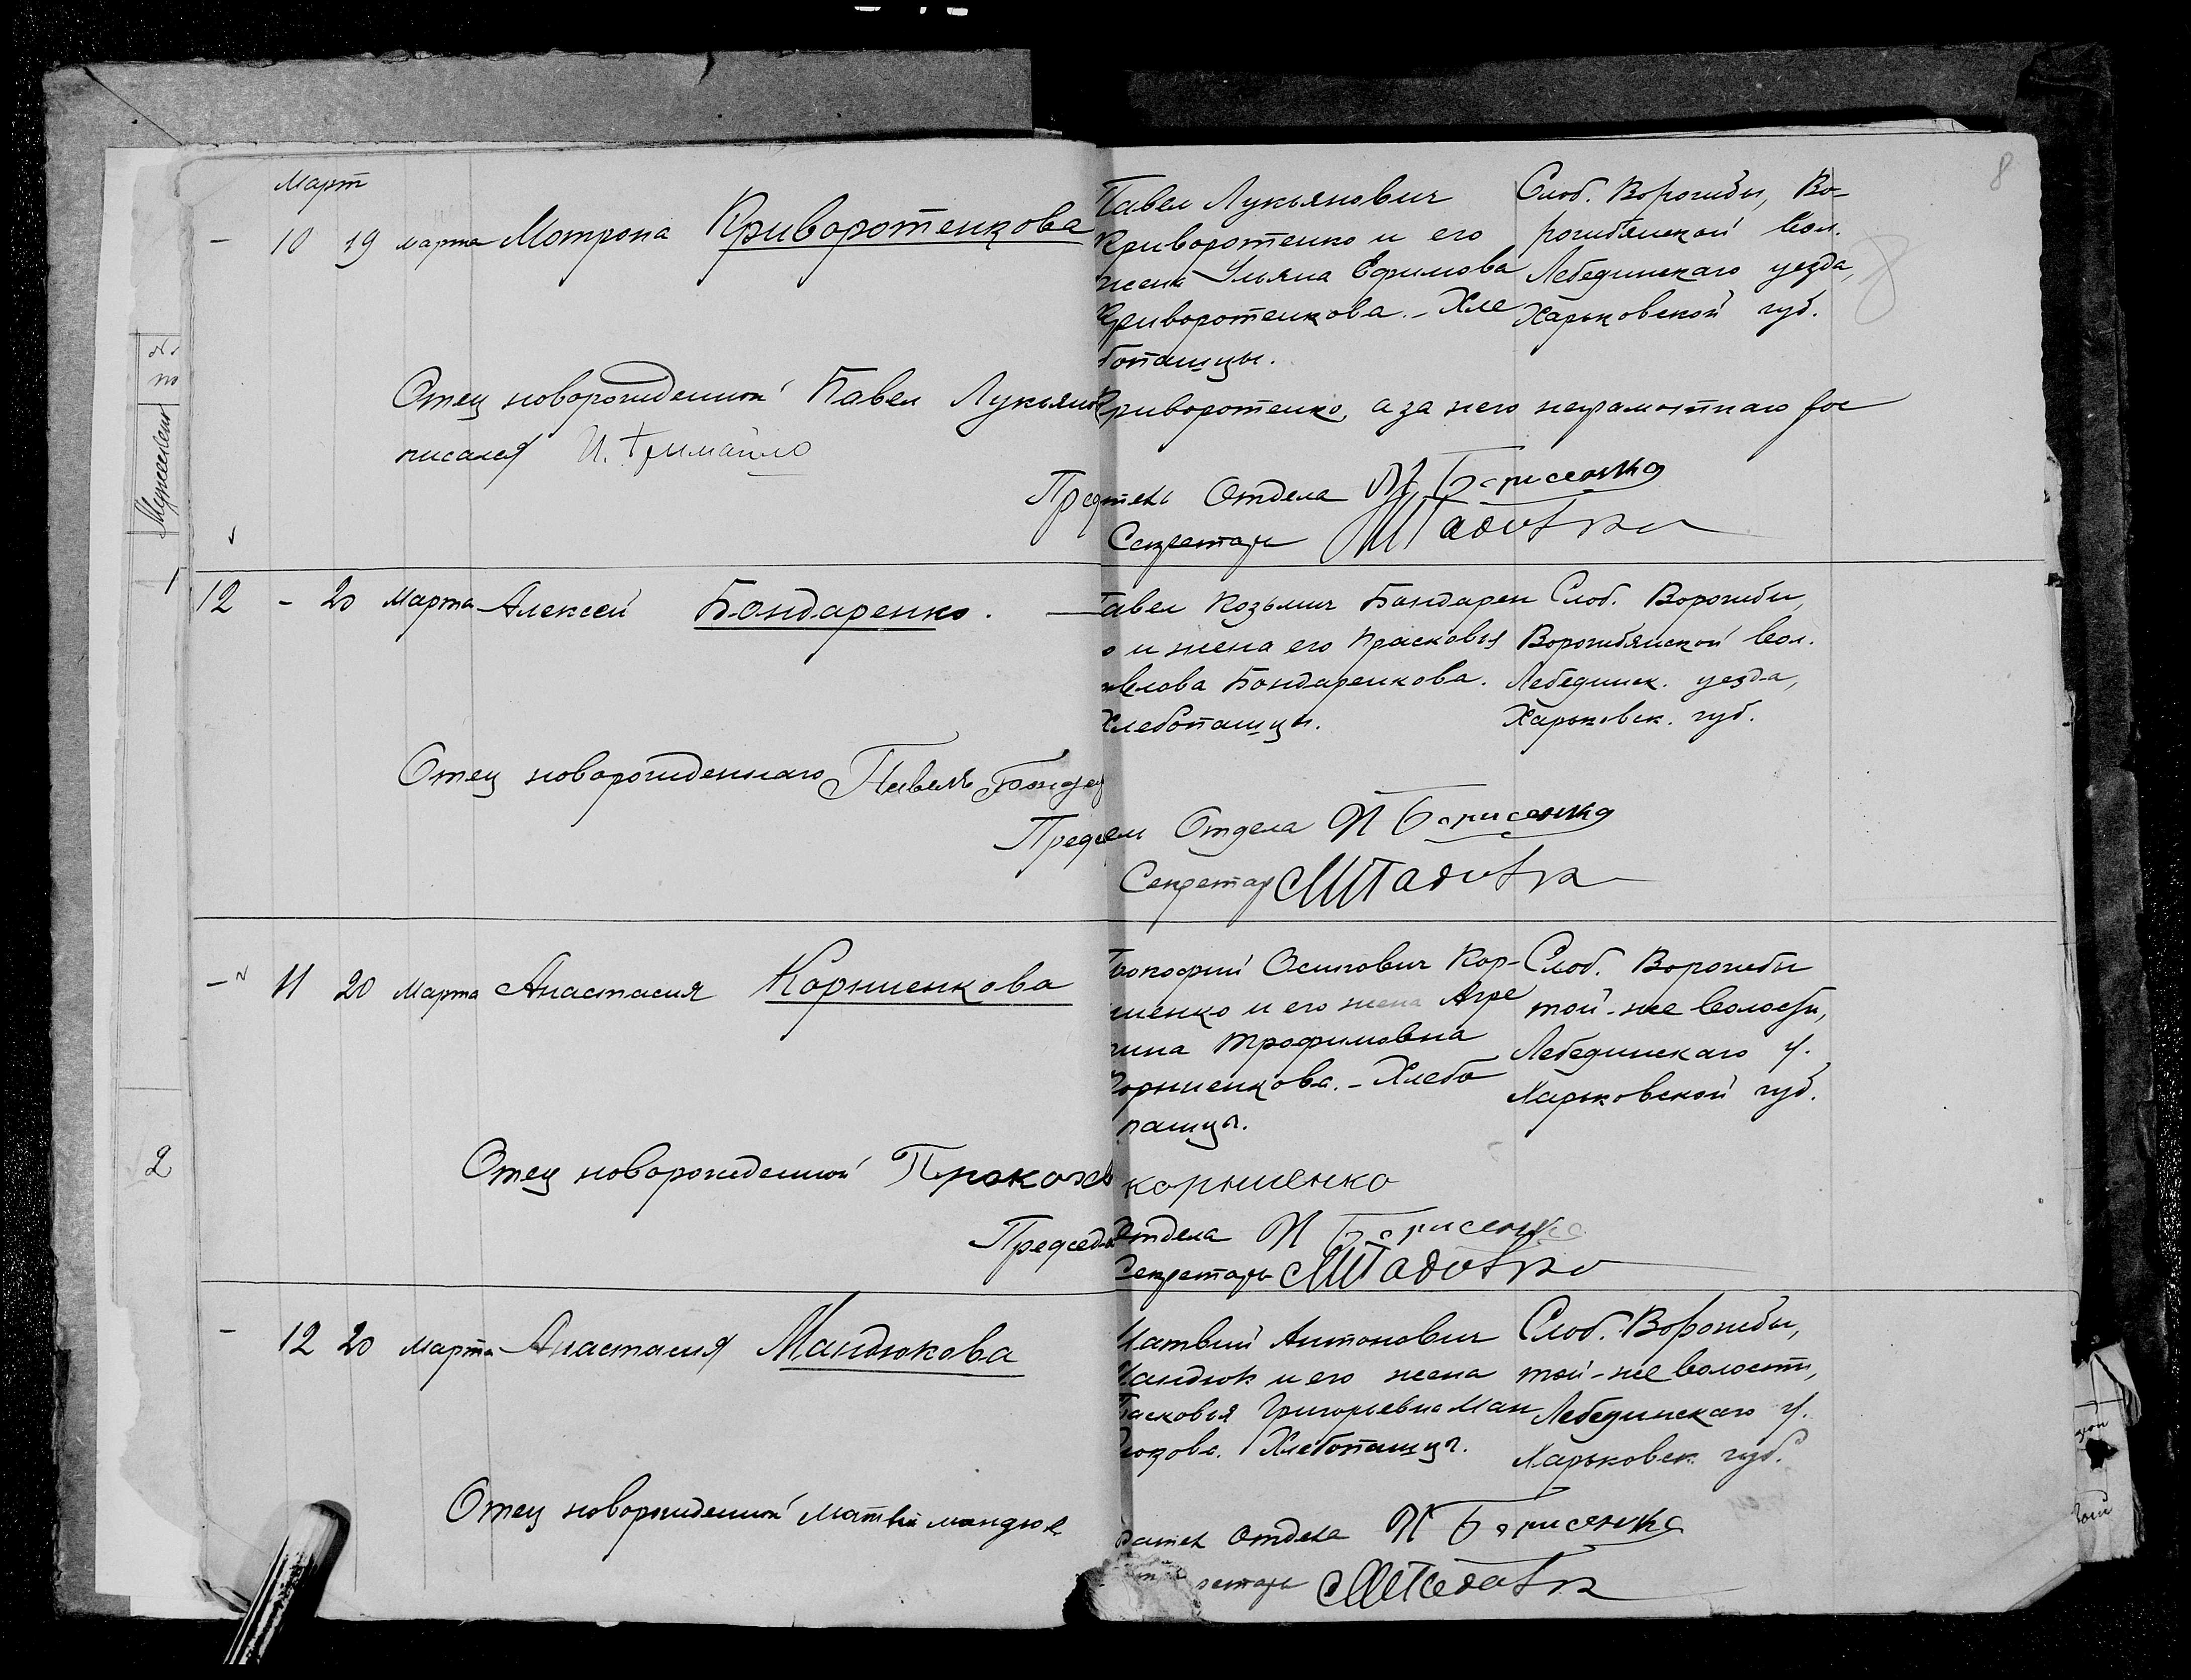 Март
8
8
№
по
Мужеского
1
2
— 10 19 марта Мотрона Криворотенкова
Павел Лукьянович
Криворотенко и его
жена Ульяна Ефимова
Криворотенкова. - Хле
бопашцы.
Слоб. Ворожбы, Во-
рожбянской вол.
Лебединскаго уезда,
Харьковской губ.
Отец новорожденной Павел Лукьянов Криворотенко, а за него неграмотнаго рос
писался И.
Предтель Отдела И Борисенко
Секретарь
12 - 20 Марта Алексей Бондаренко. —
Павел Козьмич Бондарен
о и жена его Прасковья
влова Бондаренкова.
Хлебопашцы.
Слоб. Ворожбы,
Ворожбянской вол.
Лебединск. уезда,
Харьковск. губ.
Отец новорожденнаго Павелъ Бондар
Предсем Отдела И Борисенко
Секретар
— 11 20 Марта Анастасия Корниенкова
Прокофий Осипович Кор-
ниенко и его жена Агре
пина Трофимовна
Корниенкова. - Хлебо
пашцы.
Слоб. Ворожбы
той-же волости,
Лебединскаго у.
Харьковской губ.
Отец новорожденной Прокофий корниенко
Председ Отдела И Борисенко
Секретарь
— 12 20 марта Анастасия Мандюкова
Матвий Антонович
Мандюк и его жена
Прасковья Григорьевна Ман
дюкова. Хлебопашцы.
Слоб. Ворожбы,
той-же волости,
Лебединскаго у.
Харьковск. губ.
Отец новорожденной Матвий мандюк
датель Отдела И Борисенко
ретарь